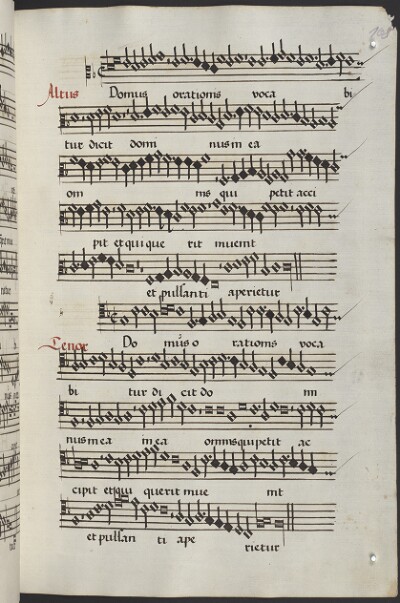 Altus Domus orationis voca bi
tur dicit domi nus in ea
om nis qui petit acci
pit et qui que rit invenit
et pulsanti aperietur
Tenor Do mus o rationis voca
bi tur di cit do mi
nus in ea in ea omnis qui petit ac
cipit et qui querit inve nit
et pulsan ti ape rietur